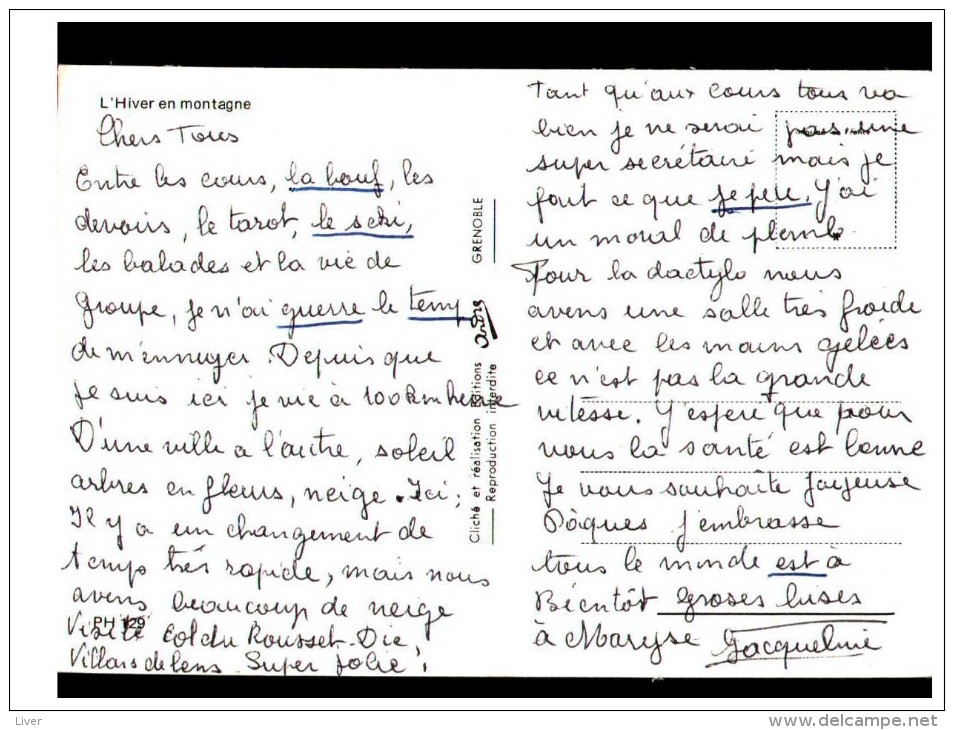 L'Hiver en montagne
Chers Tous
Entre les cours, la bouf, les
devoirs, le tarot, le scki,
les balades et la vie de
Groupe, Je n'ai guerre le temp
de m'ennuyer. Depuis que
je suis ici je vie à 100km heure
D'une ville a l'autre, soleil
arbres en fleurs, neige. Ici,
Il y a un changement de
temps très rapide, mais nous
avens beaucoup de neige
PH 129
Visité Col du Rousset-Die,
Villars de lens Super Jolie,
GRENOBLE
andré
Cliché et réalisation Editions
Reproduction interdite
Tant qu'aux cours tous va
bien je ne serai pas une
super secrétaire mais je
fait ce que je peu. J'ai
un moral de plomb.
Pour la dactylo nous
avens une salle très froide
et avec les mains gélées
ce n'est pas la grande
vitesse. J'espere que pour
vous la santé est bonne
Je vous souhaite Joyeuse
Pâques J'embrasse
tous le monde est à
Bientôt Groses bises
à Maryse Jacqueline
Liver
www.delcampe.net